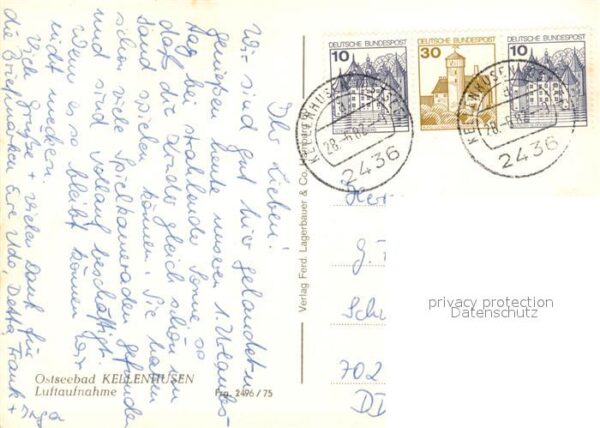 Ihr Lieben!
Wir sind gut hier gelandet u.
genießen heute unseren 1. Urlaubs-
tag bei strahlender Sonne so
daß die Kinder gleich schön im
Sand spielen können. Sie haben
schon viele Spielkameraden gefunden
und sind vollauf beschäftigt.
Wenn es so bleibt können wir
nicht meckern.
Viele Grüße + vielen Dank für
die Briefmarken Eure Udo, Frank +
Inga
Ostseebad KELLENHUSEN
Luftaufnahme
Frg. 2496/75
Verlag Ferd. Lagerbauer & Co.
DEUTSCHE BUNDESPOST
10
DEUTSCHE BUNDESPOST
30
DEUTSCHE BUNDESPOST
10
KELLENHUSEN
28.-6.82
2436
KELLENHUSEN
28.-6.82
2436
Herr
702
privacy protection
Datenschutz